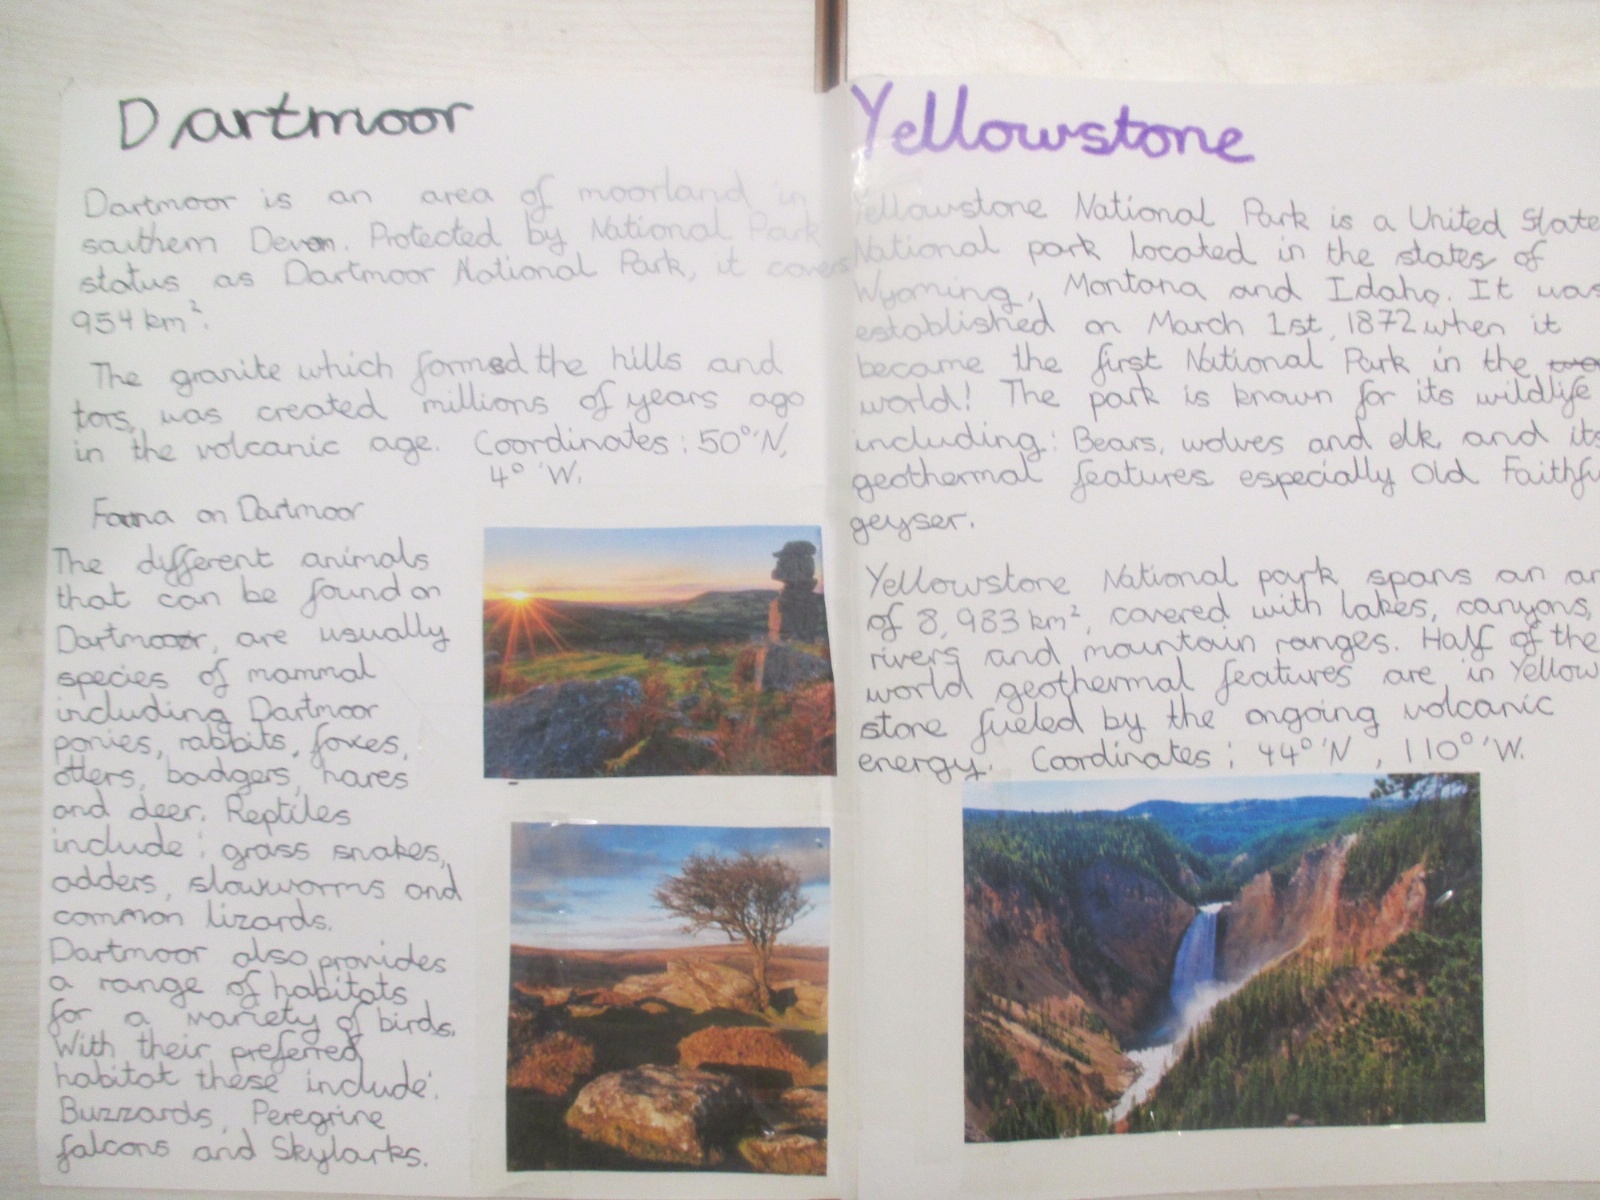 Dartmoor
Dartmoor is an area of moorland in
southern Devon. Protected by National Park
status as Dartmoor National Park, it covers
954 km².
The granite which formed the hills and
tors, was created millions of years ago
in the volcanic age. Coordinates: 50°'N,
4°'W.
Fauna on Dartmoor
The different animals
that can be found on
Dartmoor, are usually
species of mammal
including Dartmoor
ponies, rabbits, foxes,
otters, badgers, hares
and deer. Reptiles
include: grass snakes,
adders, slowworms and
common lizards.
Dartmoor also provides
a range of habitats
for a variety of birds.
With their preferred
habitat these include:
Buzzards, Peregrine
falcons and Skylarks.
Yellowstone
Yellowstone National Park is a United State
National park located in the states of
Wyoming, Montana and Idaho. It was
established on March 1st, 1872 when it
became the first National Park in the
world! The park is known for its wildlife
including: Bears, wolves and elk and its
geothermal features especially Old Faithfu
geyser.
Yellowstone National park spans an ar
of 8,983 km², covered with lakes, canyons,
rivers and mountain ranges. Half of the
world geothermal features are in Yellow
stone fueled by the ongoing volcanic
energy. Coordinates: 44°'N, 110°'W.